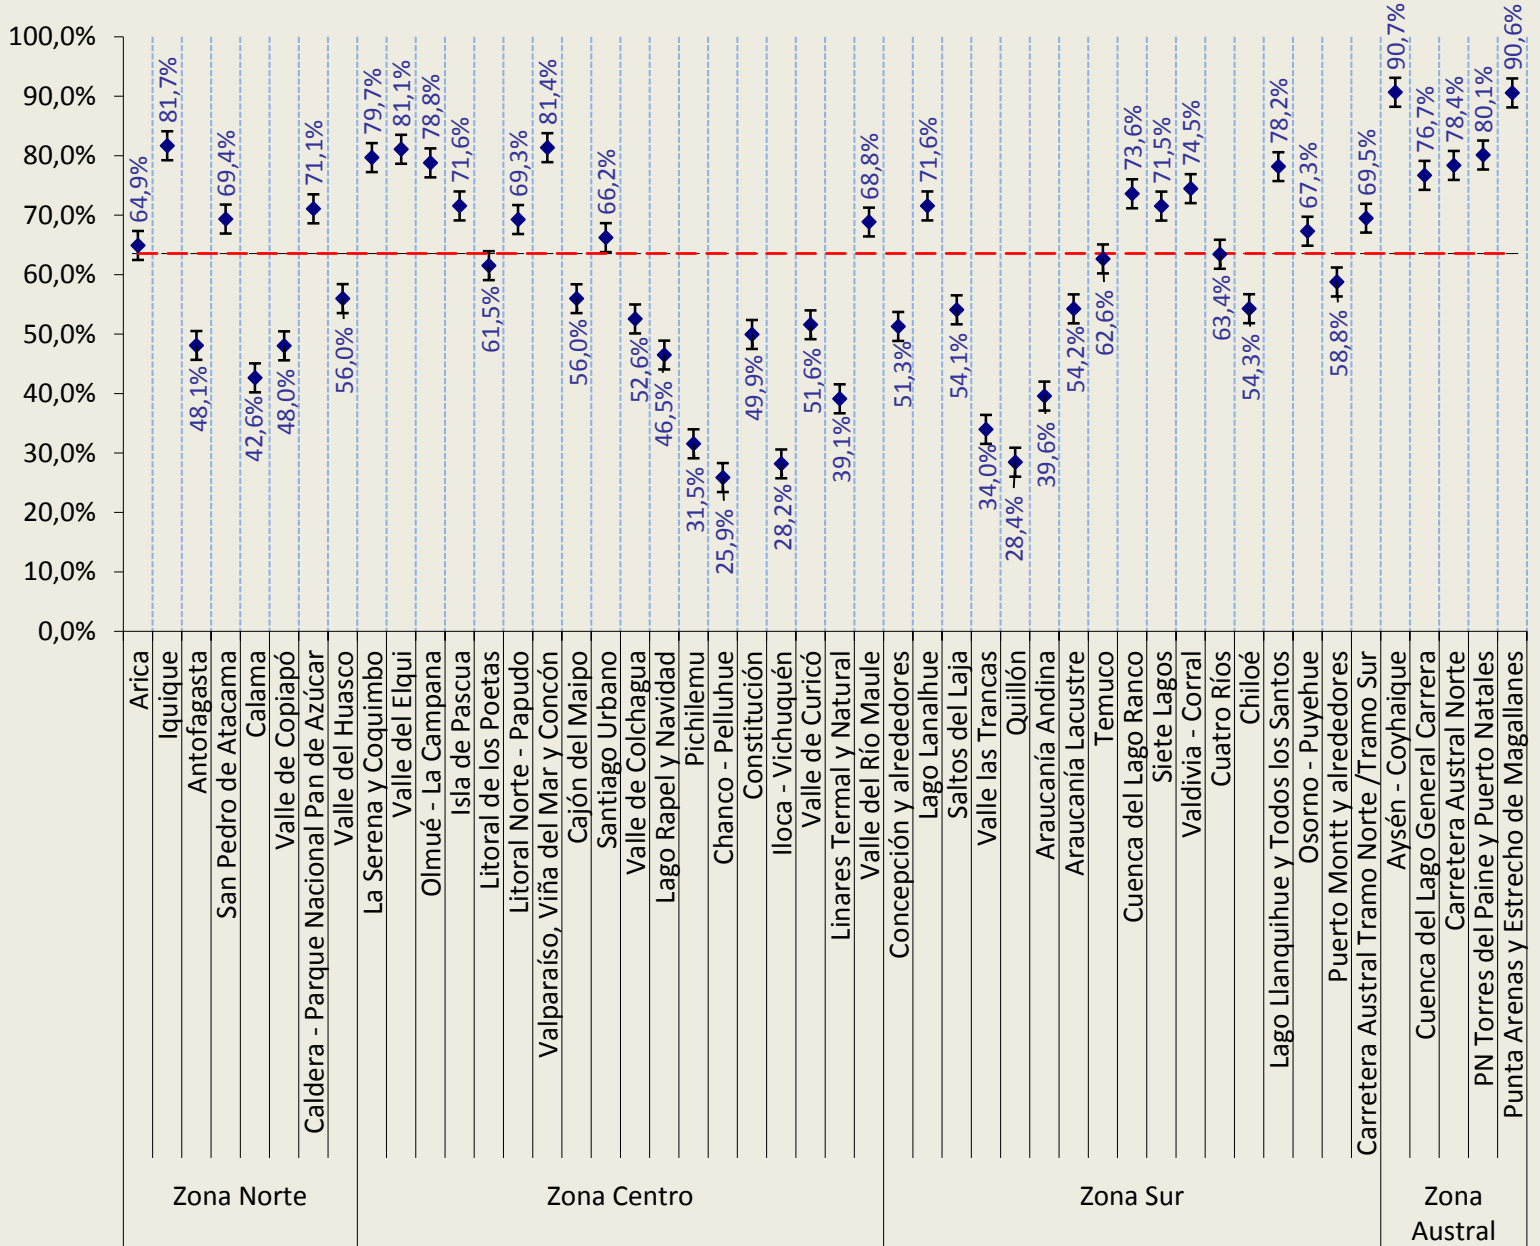 100,0%
90,0%
80,0%
70,0%
60,0%
50,0%
40,0%
30,0%
20,0%
10,0%
0,0%
64,9%
81,7%
48,1%
69,4%
42,6%
48,0%
71,1%
56,0%
79,7%
81,1%
78,8%
71,6%
61,5%
69,3%
81,4%
56,0%
66,2%
52,6%
46,5%
31,5%
25,9%
49,9%
28,2%
51,6%
39,1%
68,8%
51,3%
71,6%
54,1%
34,0%
28,4%
39,6%
54,2%
62,6%
73,6%
71,5%
74,5%
63,4%
54,3%
78,2%
67,3%
58,8%
69,5%
90,7%
76,7%
78,4%
80,1%
90,6%
Arica
Iquique
Antofagasta
San Pedro de Atacama
Calama
Valle de Copiapó
Caldera - Parque Nacional Pan de Azúcar
Valle del Huasco
La Serena y Coquimbo
Valle del Elqui
Olmué - La Campana
Isla de Pascua
Litoral de los Poetas
Litoral Norte - Papudo
Valparaíso, Viña del Mar y Concón
Cajón del Maipo
Santiago Urbano
Valle de Colchagua
Lago Rapel y Navidad
Pichilemu
Chanco - Pelluhue
Constitución
Iloca - Vichuquén
Valle de Curicó
Linares Termal y Natural
Valle del Río Maule
Concepción y alrededores
Lago Lanalhue
Saltos del Laja
Valle las Trancas
Quillón
Araucanía Andina
Araucanía Lacustre
Temuco
Cuenca del Lago Ranco
Siete Lagos
Valdivia - Corral
Cuatro Ríos
Chiloé
Lago Llanquihue y Todos los Santos
Osorno - Puyehue
Puerto Montt y alrededores
Carretera Austral Tramo Norte /Tramo Sur
Aysén - Coyhaique
Cuenca del Lago General Carrera
Carretera Austral Norte
PN Torres del Paine y Puerto Natales
Punta Arenas y Estrecho de Magallanes
Zona Norte
Zona Centro
Zona Sur
Zona
Austral